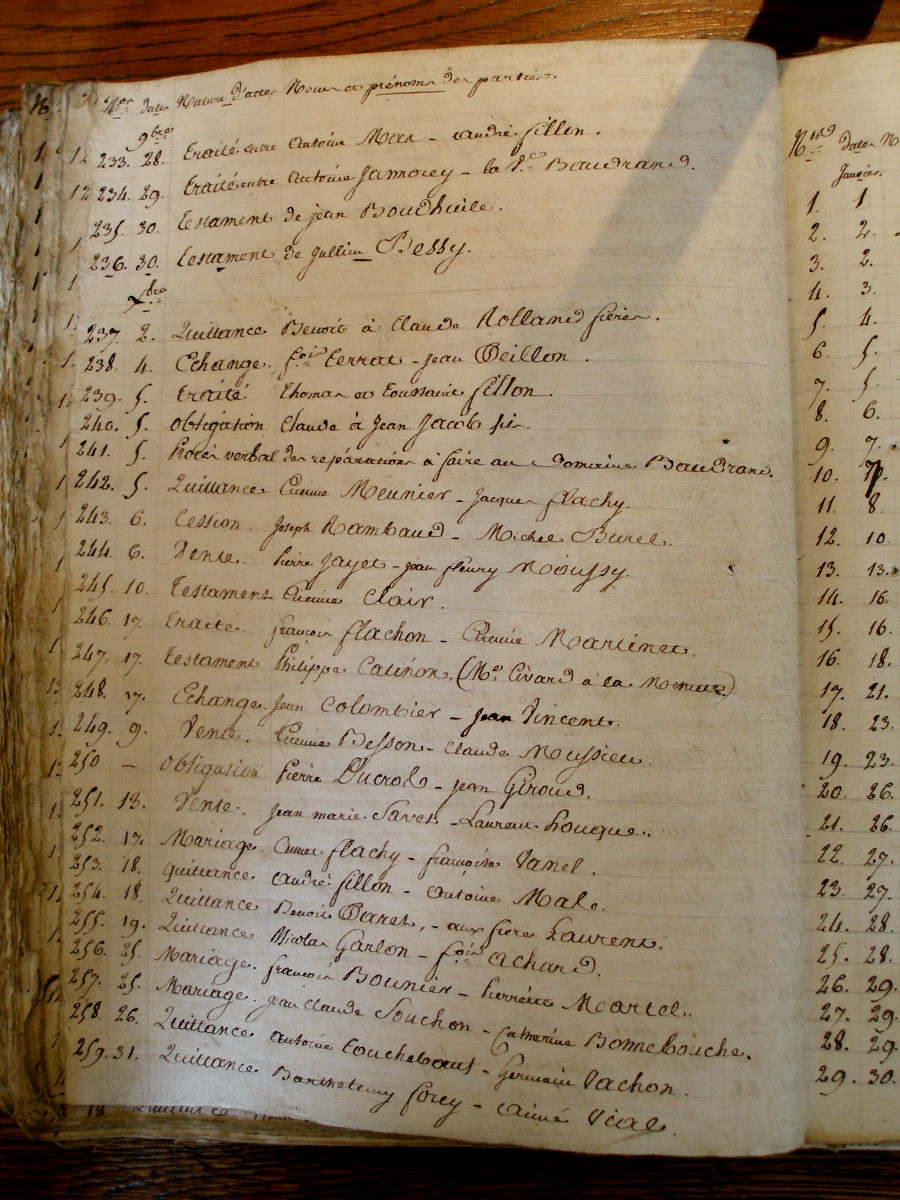 Nos dates Nature d'actes Noms et prénoms des parties.
9bre
233. 28. traité entre Antoine Mas - andré fillon.
234. 29. traité entre Antoine Jamorey - la Ve Baudrand.
235. 30. testament de jean Boudhuile.
236. 30. testament de Jullien Bessy.
Xbre
237. 2. Quittance Benoit à Claude Rolland frères.
238. 4. Echange. fois terrat - jean Oeillon.
239. 5. traité Thomas et toussaint fillon.
240. 5. obligation Claude à Jean Jacob fils.
241. 5. Procès verbal des réparations à faire au Domaine Baudrand.
242. 5. Quittance Etienne Meunier - Jacques flachy.
243. 6. Cession. Joseph Rambaud - Michel Burel.
244. 6. Vente. Pierre Jayet - jean fleury Moussy.
245. 10. testament Etienne Clair.
246. 17. traité. françois flachon - Etienne Martinet.
247. 17. testament Philippe Catinon, (Me Civard à la Minute)
248. 17. Echange. Jean Colombier - jean Vincent.
249. 9. Vente. Etienne Besson - Claude Moussieu.
250 - obligation Pierre Ducrot - jean Giroud.
251. 13. Vente. Jean marie Savet - Laurent fouque.
252. 17. Mariage. flachy - françoise Vanel.
253. 18. quittance. andré fillon - antoine Mat.
254. 18. Quittance Benoit Baret, - aux frères Laurent.
255. 19. Quittance Nicolas Garlon - fois achard.
256. 25. Mariage. françois Bounier - Pierrette Martel.
257. 25. Mariage. jean Claude Souchon - Catherine Bonnebouche.
258. 26. Quittance antoine touchebœuf - Germain Vachon.
259. 31. Quittance Barthelemy forey - aimé Vial.
18. Quittance
Nos Dates N
Janvier.
1. 1.
2. 2.
3. 2.
4. 3.
5. 4.
6. 5.
7. 5.
8. 6.
9. 7.
10. 7.
11. 8.
12. 10.
13. 13.
14. 16.
15. 16.
16. 18.
17. 21.
18. 23.
19. 23.
20. 26.
21. 26.
22. 27.
23. 27.
24. 28.
25. 28.
26. 29.
27. 29.
28. 29.
29. 30.